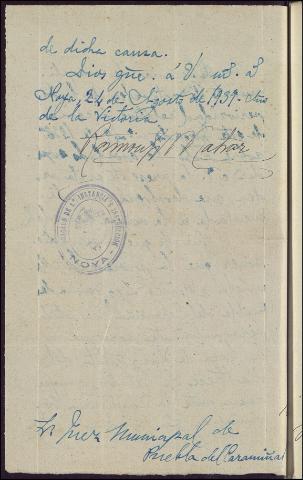 de dicha causa.
Dios gue. á V. m. a
Noya, 24 de Agosto de 1939. Año
de la Victoria
JUZGADO DE 1ª INSTANCIA E INSTRUCCION
NOYA
Sr Juez Municipal de
Puebla del Caramiñal